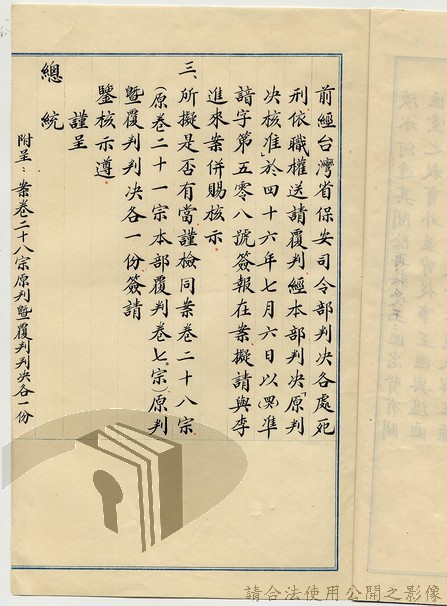 前經台灣省保安司令部判决各處死
刑依職權送請覆判經本部判决「原判
决核准」於四十六年七月六日以(46)準
諳字第五零八號簽報在案擬請與李
進來案併賜核示
三、所擬是否有當謹檢同案卷二十八宗
(原卷二十一宗本部覆判卷七宗)原判
暨覆判判决各一份簽請
鑒核示遵
謹呈
總統
附呈:案卷二十八宗原判暨覆判判决各一份
請合法使用公開之影像